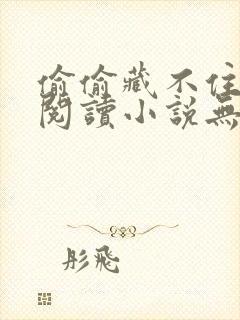 偷偷藏不住
閱讀小說無
彤飛